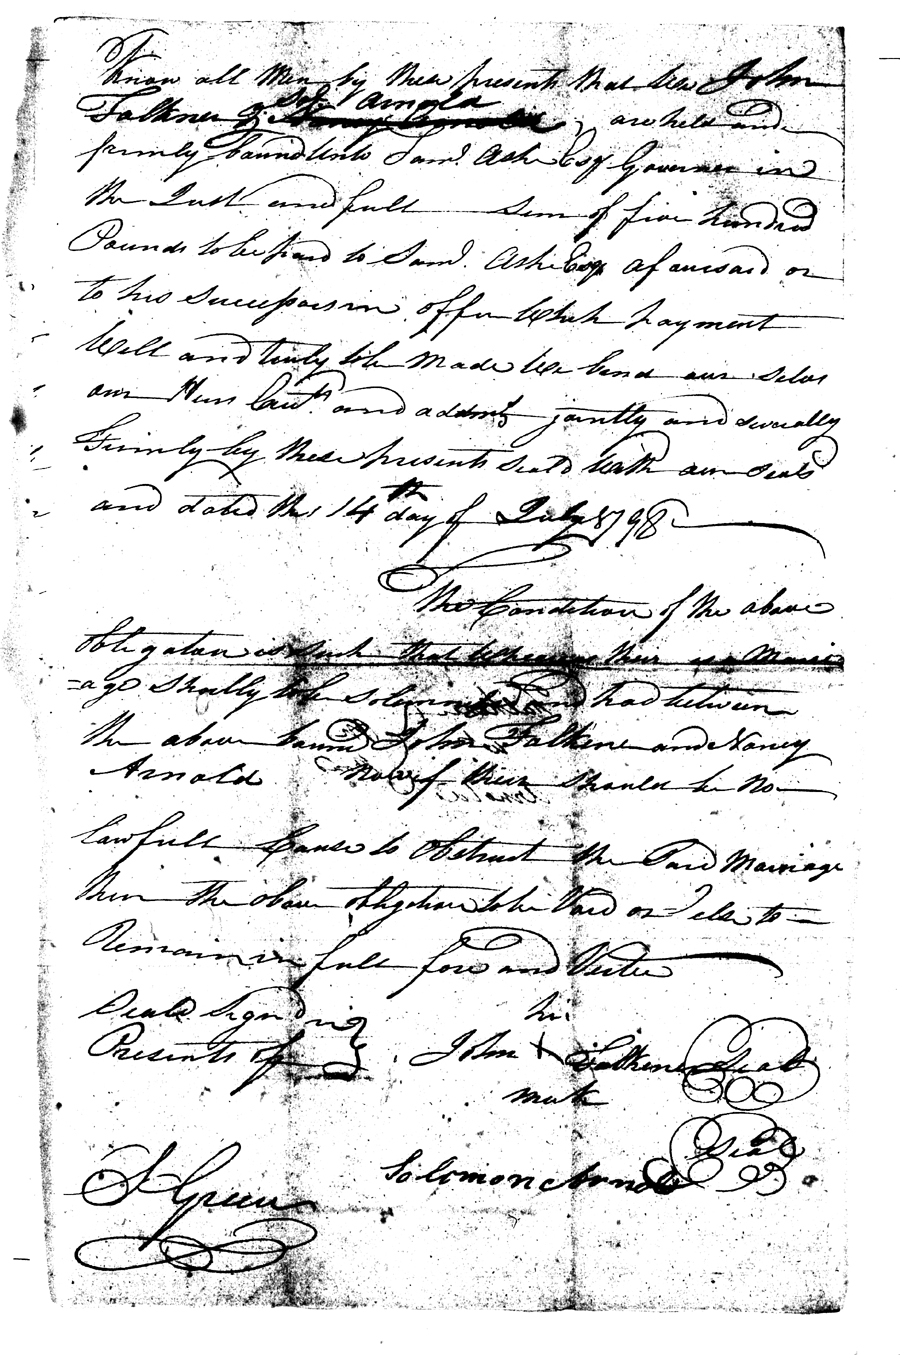 Know all Men by these presents that we John
Sol. Arnold
Falkner & Nancy Arnold, are held and
firmly bound unto Saml. Ashe Esqr Governer in
the Just and full sum of five hundred
Pounds to be paid to Saml. Ashe Esqr afouresaid or
to his Successors in offic Which payment
Well and truly to be made We bend our selvs
our Heirs and admrs jointly and severally
Firmly by these presents seald With our Seals
and dated this 14th day of July 1798
The Condition of the above
obligaton is such that Wheareas their is a Marri
=age shortly to be solemnizd and had between
the above bound John Falkner and Nancy
Arnold now if their should be no
lawfull Cause to obstruct the Said Marriage
then the above obligation to be Void or else to
Remain in full force and Vertue
Seald Signd in
Presents of
his
John + Falkener Seal
mark
Solomon Arnold Seal
S Green